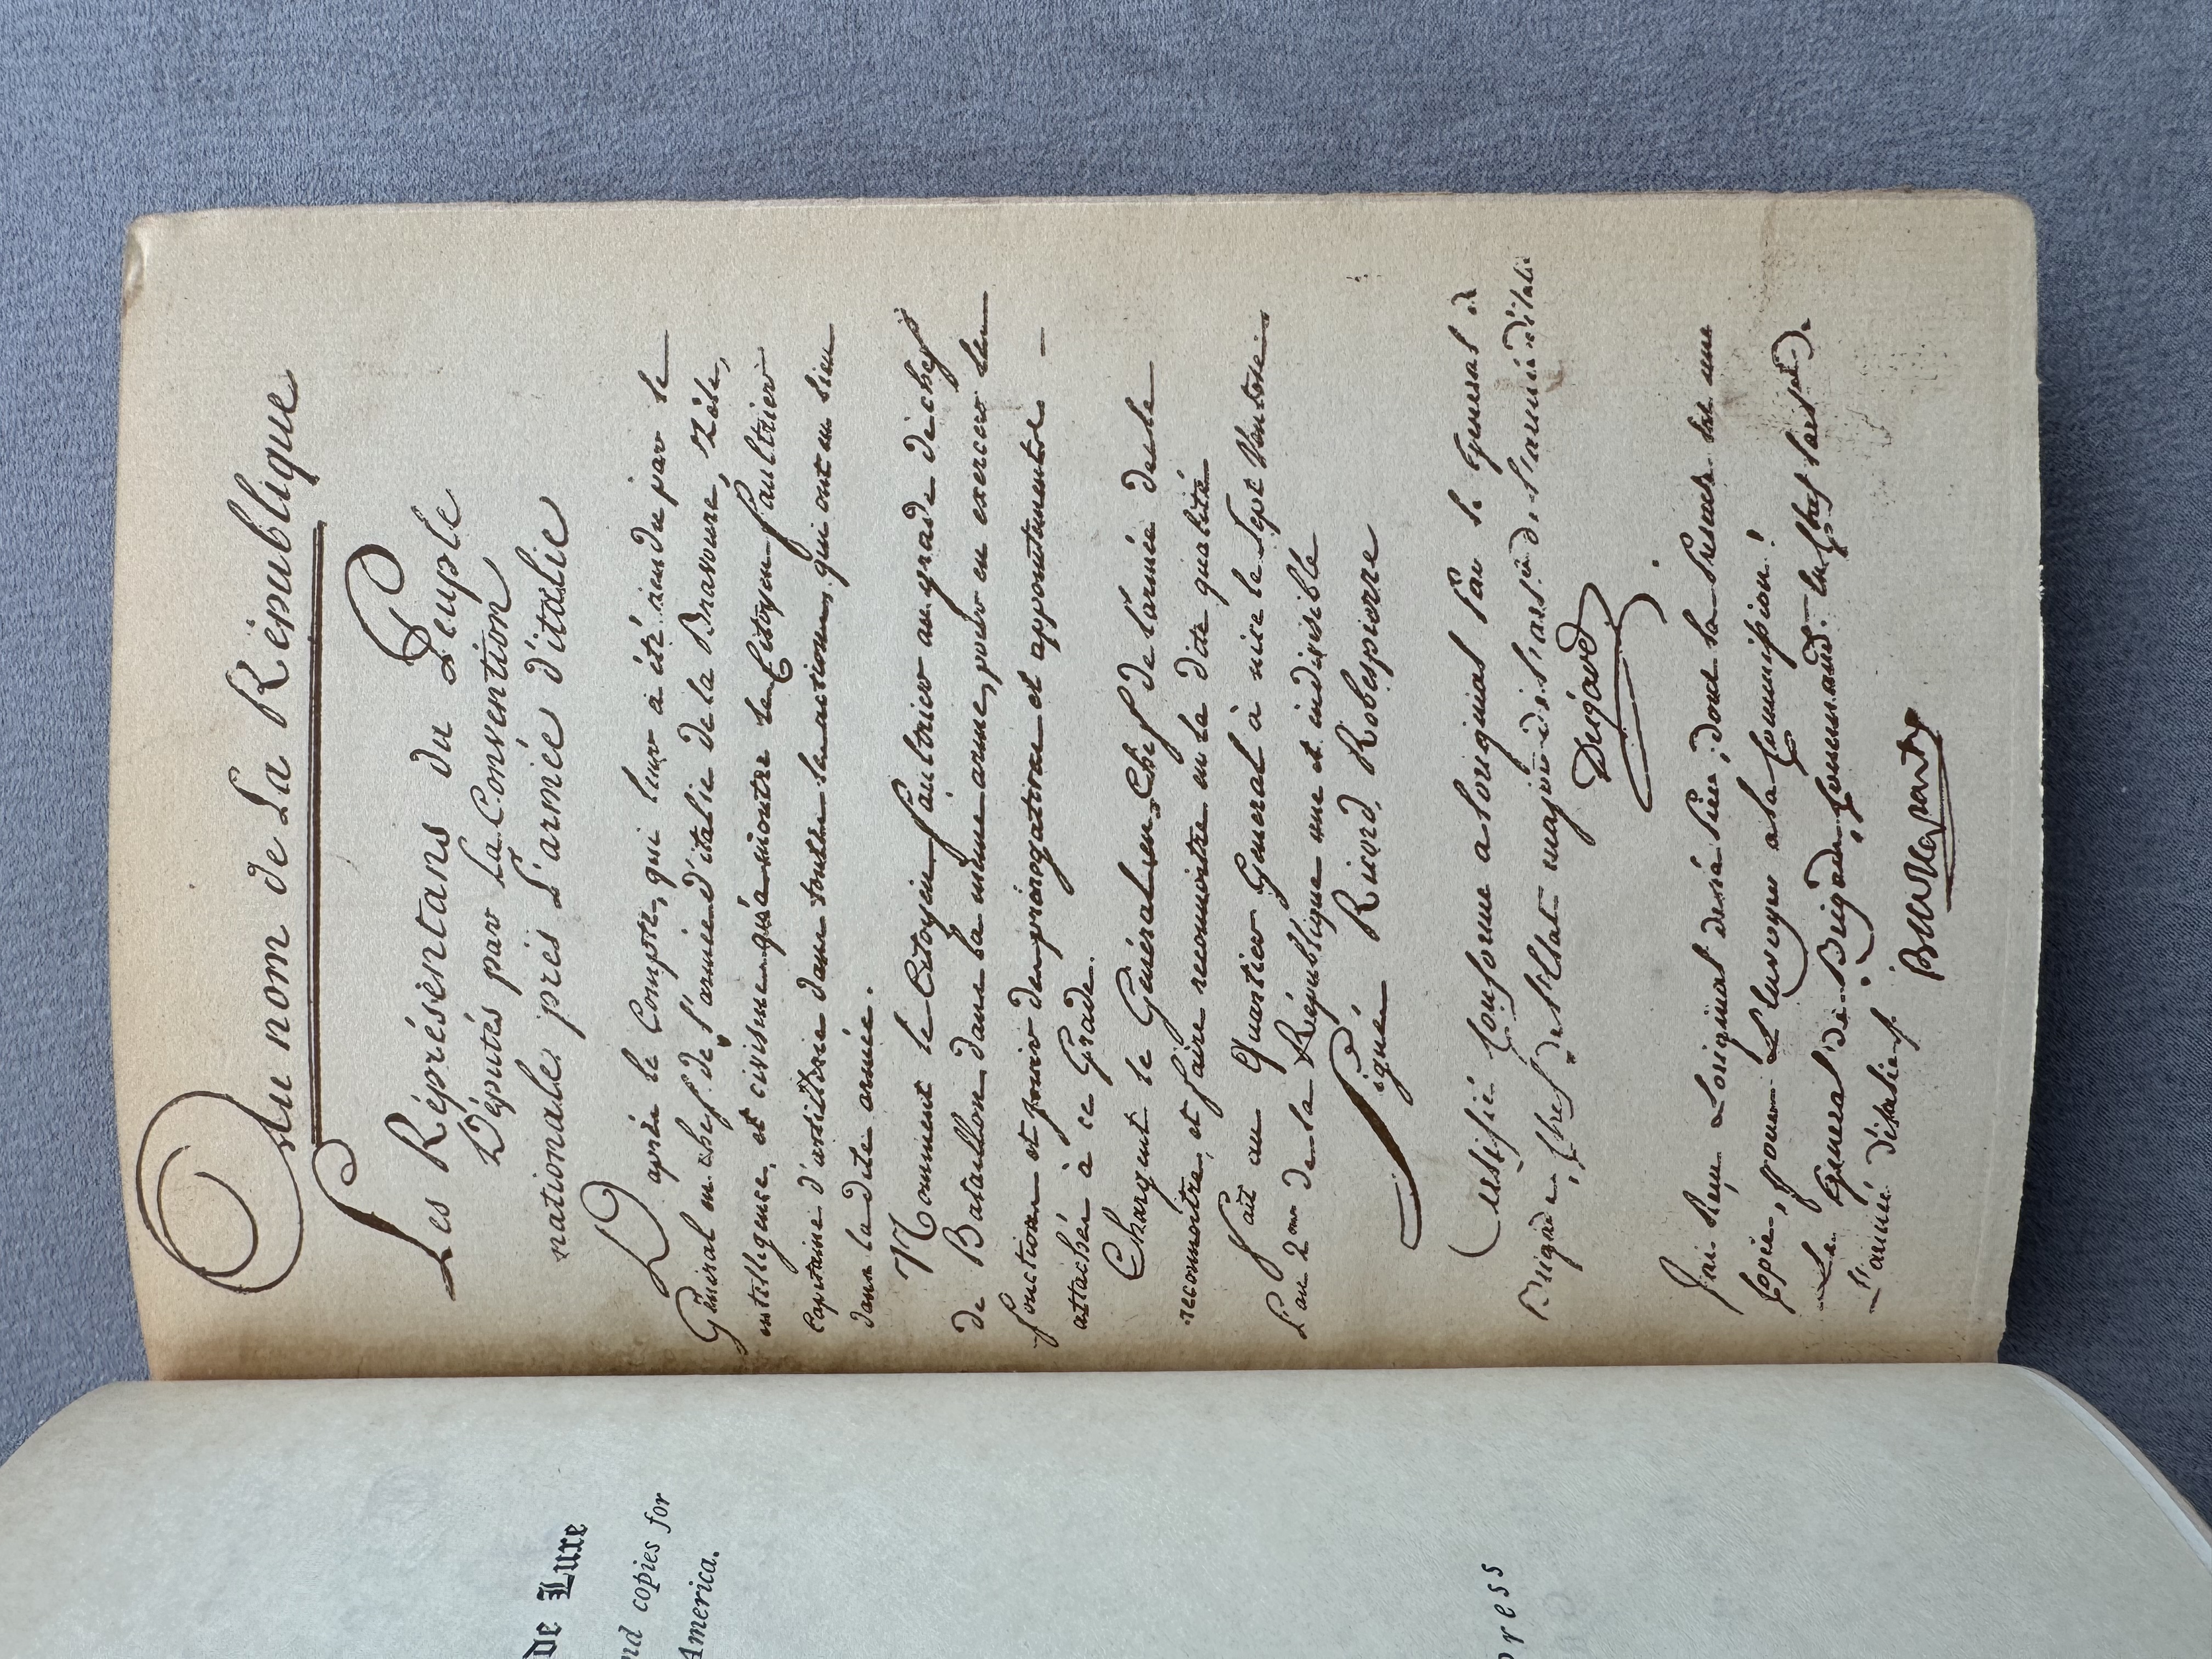 Au nom de La Républiquе
Les Réprésentans du Peuple
Députés par La Convention
nationale près L'armée d'italie
D'après le Compte, qui leur a été rendu par le
Général en chef de l'armée d'italie de la Bravoure, Zèle,
intelligence, et civisme qu'a montré le Citoyen Faultrier
Capitaine d'artillerie dans toutes les actions qui ont eu lieu
dans la dite armée.
Nomment le Citoyen Faultrier au grade de chef
de Bataillon dans la même arme, pour en exercer les
fonctions et jouir des prérogatives et appointements
attachés à ce Grade.
Chargent le Général en Chef de l'armée de le
reconnoitre, et faire reconnoitre en la dite qualité
Fait au Quartier Général à nice le Sept Ventose
L'an 2me de la République une et indivisible
Signé Ricord, Robespierre
Certifié Conforme a l'original Par le General de
Brigade, Chef de l'Etat major de l'armée d'italie
Dujard
J'ai Reçu L'original de la dont la Presente est une
Copie, pour L'envoyer a la Commission
Le General de Brigade Commandant en Chef
L'armée d'italie
Buonaparte
de Luxe
nd copies for
America.
ress